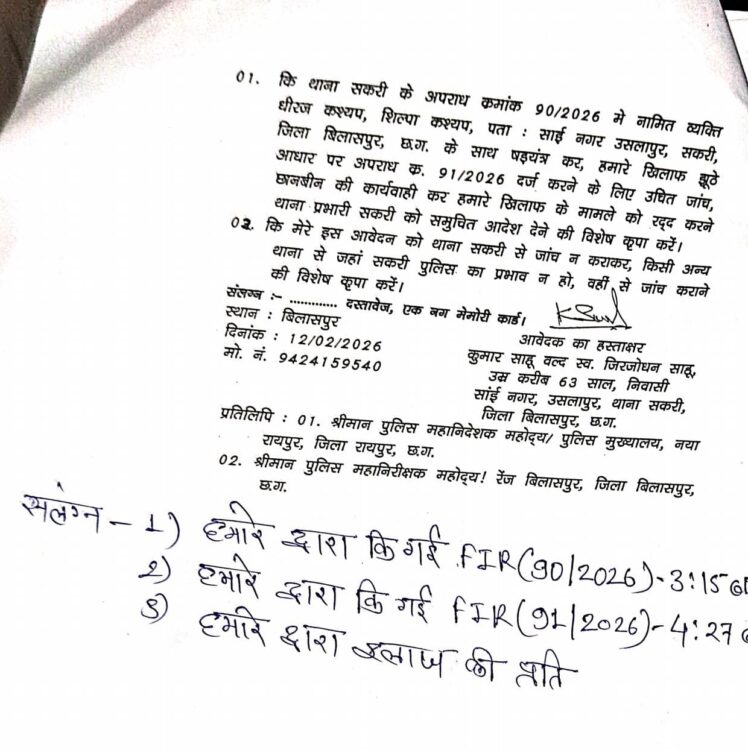 01. कि थाना सकरी के अपराध क्रमांक 90/2026 मे नामित व्यक्ति
धीरज कश्यप, शिल्पा कश्यप, पता : साई नगर उसलापुर, सकरी,
जिला बिलासपुर, छ.ग. के साथ षड़यंत्र कर, हमारे खिलाफ झूठे
आधार पर अपराध क. 91/2026 दर्ज करने के लिए उचित जांच,
छानबीन की कार्यवाही कर हमारे खिलाफ के मामले को रद्द करने
थाना प्रभारी सकरी को समुचित आदेश देने की विशेष कृपा करें।
02. कि मेरे इस आवेदन को थाना सकरी से जांच न कराकर, किसी अन्य
थाना से जहां सकरी पुलिस का प्रभाव न हो, वहीं से जांच कराने
की विशेष कृपा करें।
संलग्न :- ............. दस्तावेज, एक नग मेमोरी कार्ड।
स्थान : बिलासपुर
दिनांक : 12/02/2026
मो. नं. 9424159540
आवेदक का हस्ताक्षर
कुमार साहू वल्द स्व. जिरजोधन साहू,
उम्र करीब 63 साल, निवासी
सांई नगर, उसलापुर, थाना सकरी,
जिला बिलासपुर, छ.ग.
प्रतिलिपि : 01. श्रीमान पुलिस महानिदेशक महोद्य/ पुलिस मुख्यालय, नया
रायपुर, जिला रायपुर, छ.ग.
02. श्रीमान पुलिस महानिरीक्षक महोद्य! रेंज बिलासपुर, जिला बिलासपुर,
छ.ग.
संलग्न - 1) हमारे द्वारा कि गई FIR (90/2026) - 3:15
2) हमारे द्वारा कि गई FIR (91/2026) - 4:27
3) हमारे द्वारा इलाज की प्रति